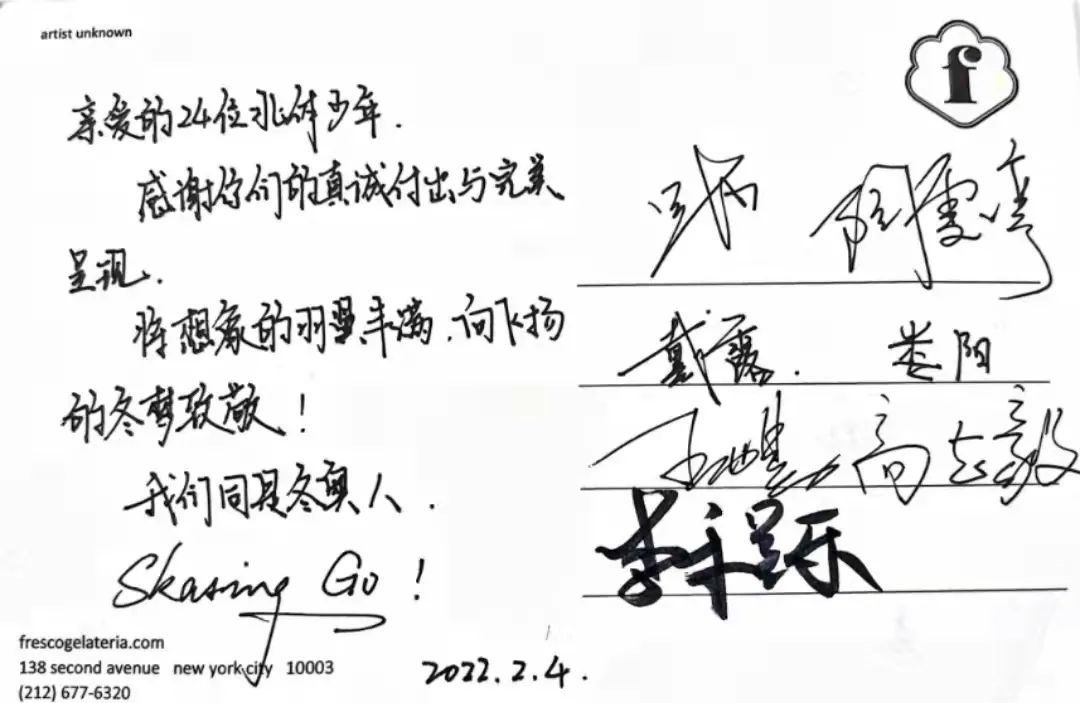 artist unknown
f
亲爱的24位北体少年.
感谢你们的真诚付出与完美
呈现.
将想象的羽翼丰满.向飞扬
的冬梦致敬!
我们同是冬奥人.
Skasing Go!
frescogelateria.com
138 second avenue new york city 10003
(212) 677-6320
戴霞. 娄阳
高志毅
2022.2.4.